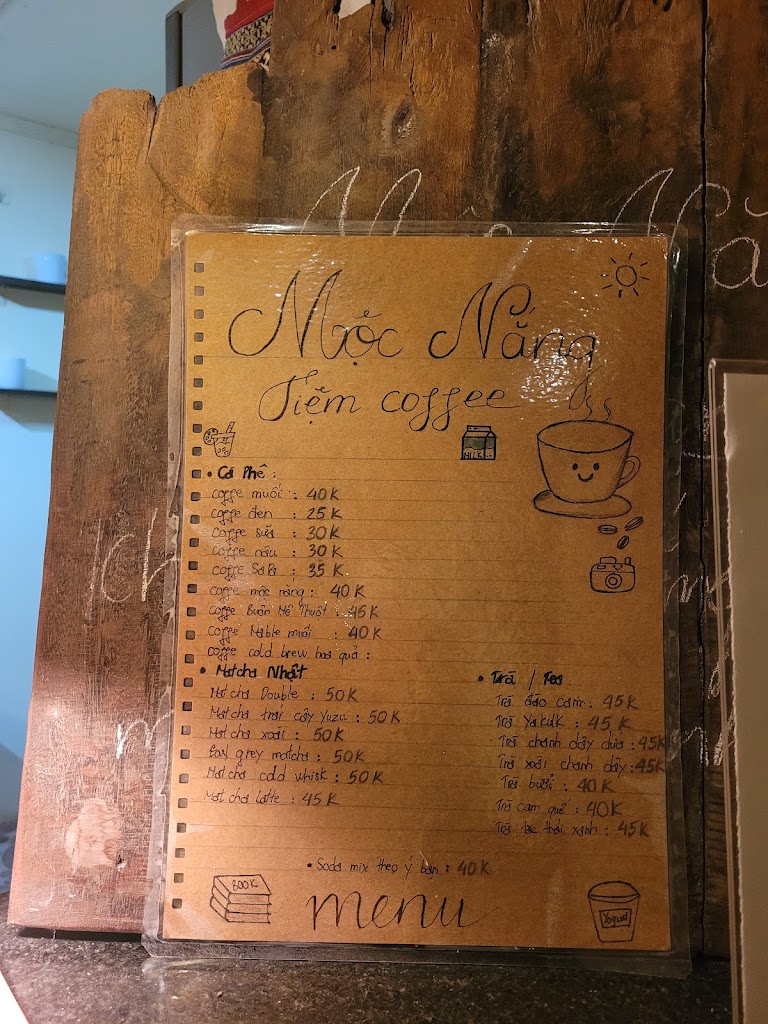 Mộc Nắng
Tiệm coffee
MILK
• Cà Phê :
coffe muối : 40K
coffe đen : 25K
coffe sữa : 30K
coffe nâu : 30K
coffe SaPa : 35K
coffe mộc nắng : 40K
coffe Buôn Mê Thuột : 45K
coffe muối : 40K
coffe cold brew hoa quả :
• Matcha Nhật
Matcha Double : 50K
Matcha trái cây Yuzu : 50K
Matcha xoài : 50K
Earl grey matcha : 50K
Matcha cold whisk : 50K
Matcha latte : 45K
• Trà / Tea
Trà đào cam : 45K
Trà Yakult : 45K
Trà chanh dây dứa : 45K
Trà xoài chanh dây : 45K
Trà bưởi : 40K
Trà cam quế : 40K
Trà thái xanh : 45K
• Soda mix theo ý bạn : 40K
BOOK
menu
Yogurt